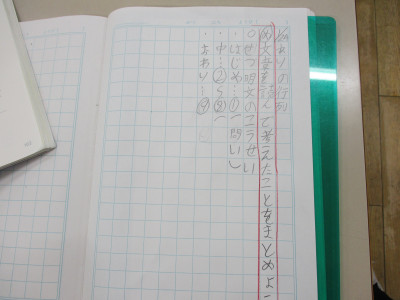 ありの行列
め文章を読んで考えたことをまとめよう
○せつ明文のこうせい
・はじめ…①(問い)
・中…②～⑧(
・おわり…⑨